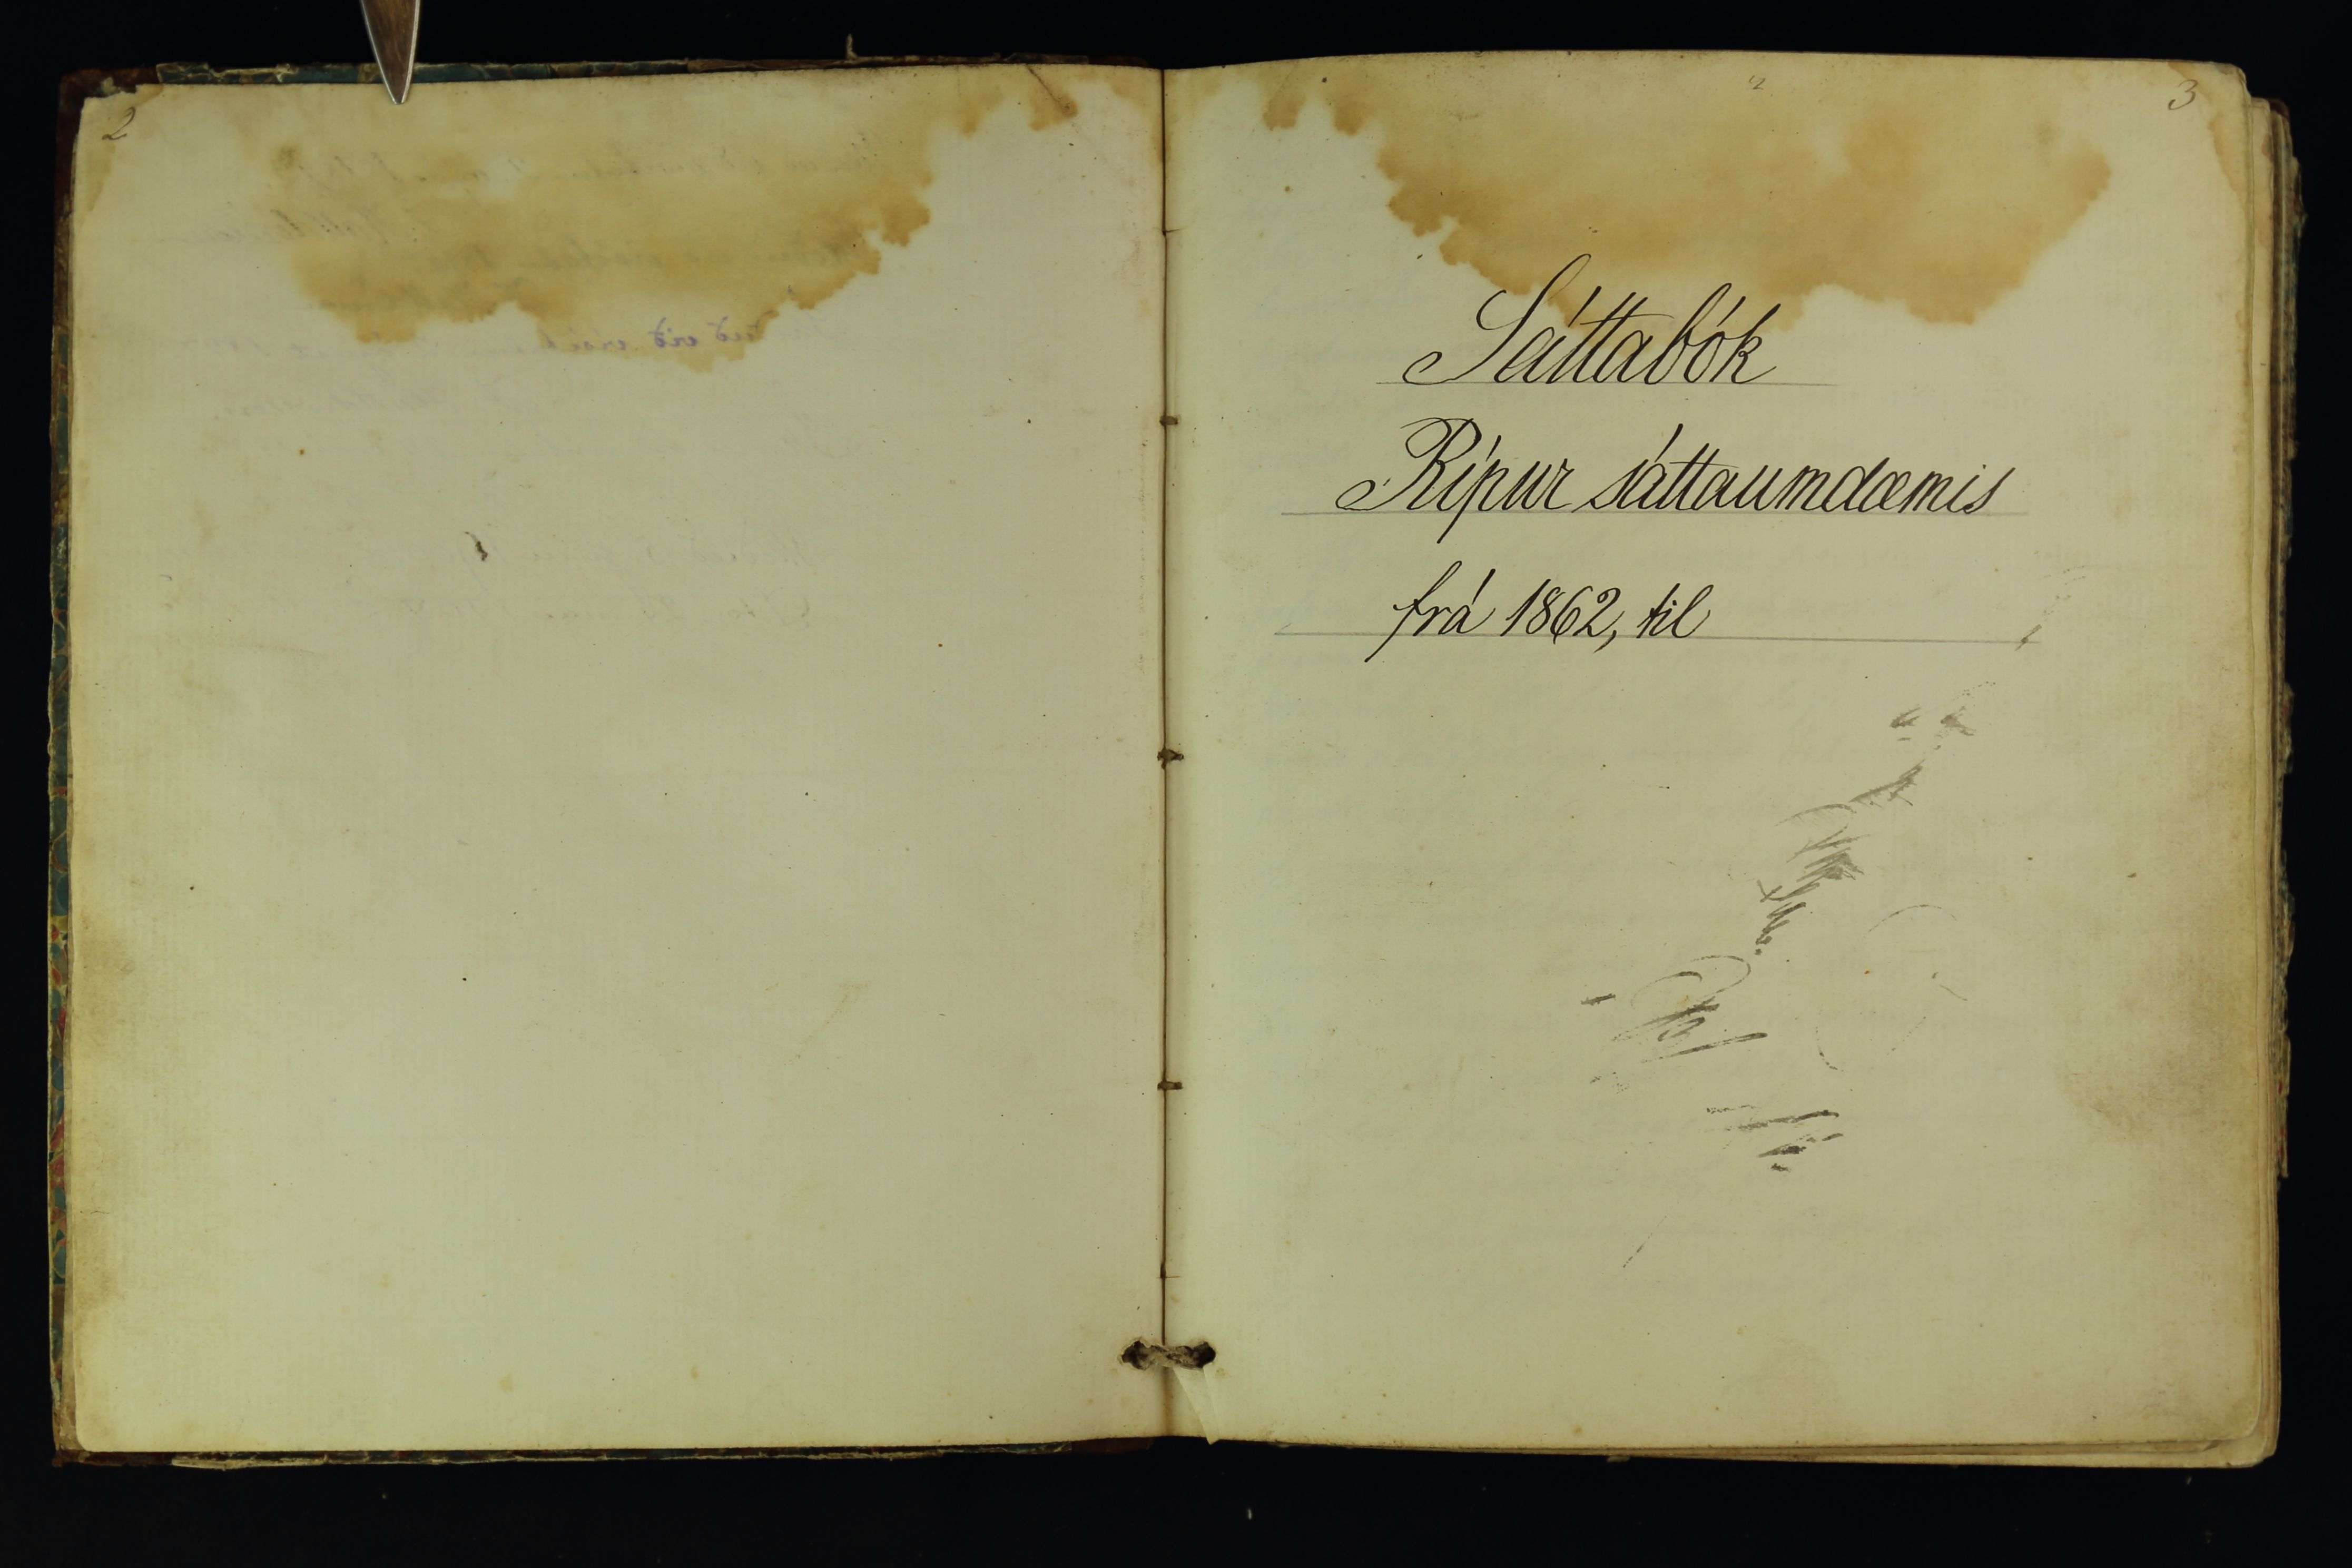 2
3
Sáttabók
Rípur sáttaumdæmis
frá 1862, til